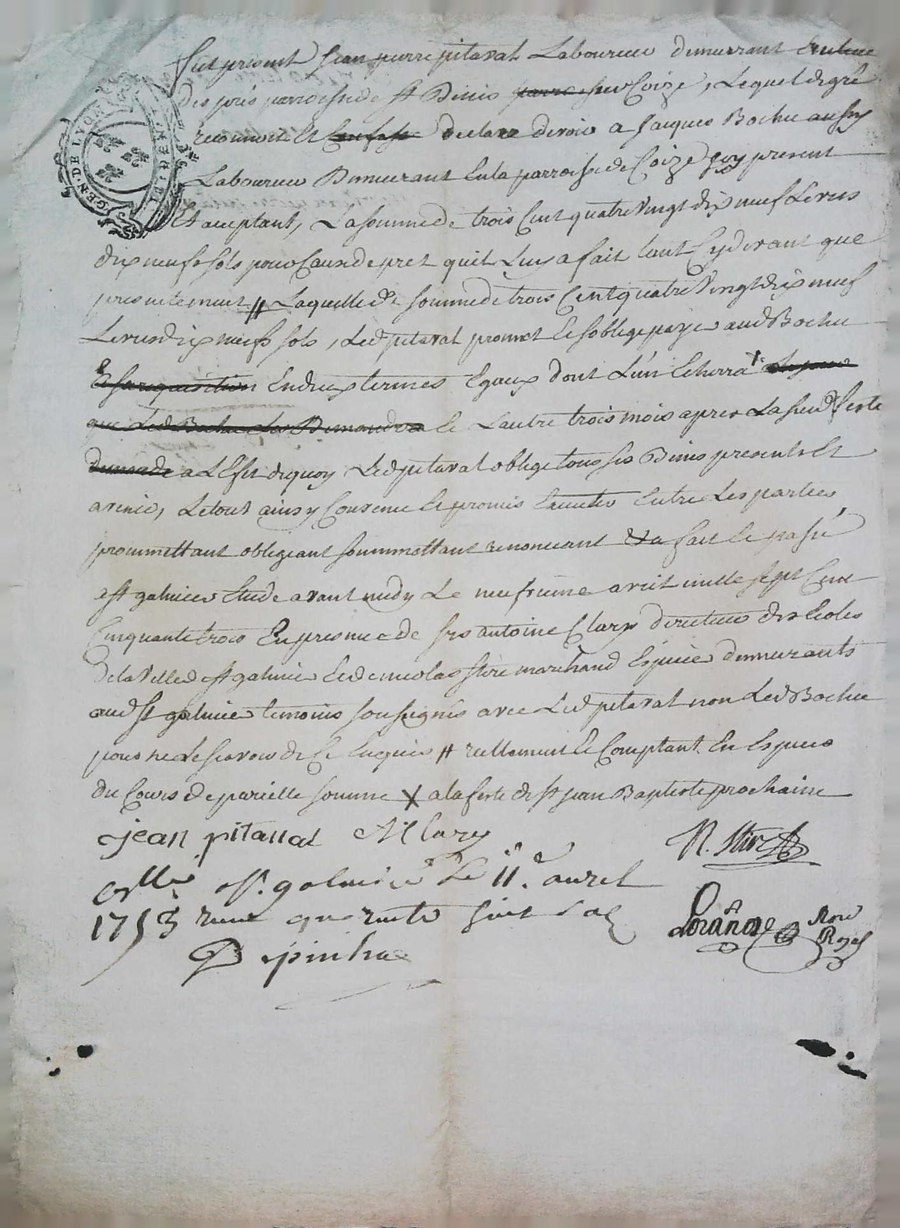 GEN. DE LYON
Fut present Jean pierre pitaval Laboureur demeurant
des prés parroisse de st Denis sur Coize, Lequel de gré
reconnoit et declare devoir a Jacques Bochu aussy
Laboureur Demeurant en la parroisse de Coize icy present
et acceptant, La somme de trois Cent quatre vingt dix neuf Livres
dix neuf sols pour Cause de pret quil Luy a fait tant Cydevant que
presentement // Laquelle de somme de trois Cent quatre vingt dix neuf
Livres dix neuf sols, Led pitaval promet et soblige payer aud Bochu
a sa requisition en deux termes Egaux dont L'un Echerra X
que Led Bochu Les Demandera et Lautre trois mois apres La sud feste
demande a L'effet dequoy Led pitaval oblige tous ses Biens presents et
avenir, Le tout ainsy Convenu et promis Executer entre Les parties
prommettant obligeant soummettant renonceant &a fait et passé
a st galmier Etude avant midy Le neufvieme avril mille sept Cent
Cinquante trois En presence de sr antoine Clary directeur des Ecoles
de la ville de st galmier et de nicolas stire marchand Epicier demeurants
aud st galmier temoins soussignés avec Led pitaval non Led Bochu
pour ne Le scavoir de Ce Enquis // reellement et Comptant En Especes
du Cours de pareille somme X a la feste de st jean Baptiste prochaine
jean pitaval A Clary
R. Stire
Cllé a st. galmier Le 11e avril
1753 recu quarente huit sols
Depinhac
Noire
Royal